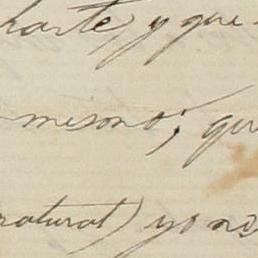 harte, y que
mismo; que
natural) yo no